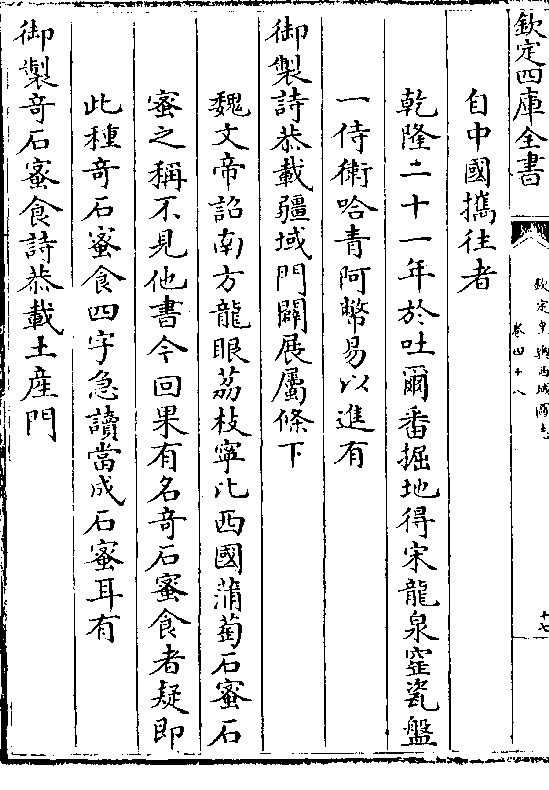 欽定四庫全書
欽定皇輿西域圖志
卷四十八
十七
自中國攜往者
乾隆二十一年於吐爾番掘地得宋龍泉窑瓷盤
一侍衛哈青阿幣易以進有
御製詩恭載疆域門闢展屬條下
魏文帝詔南方龍眼荔枝寧比西國蒲萄石蜜石
蜜之稱不見他書今回果有名奇石蜜食者疑即
此種奇石蜜食四字急讀當成石蜜耳有
御製奇石蜜食詩恭載土産門